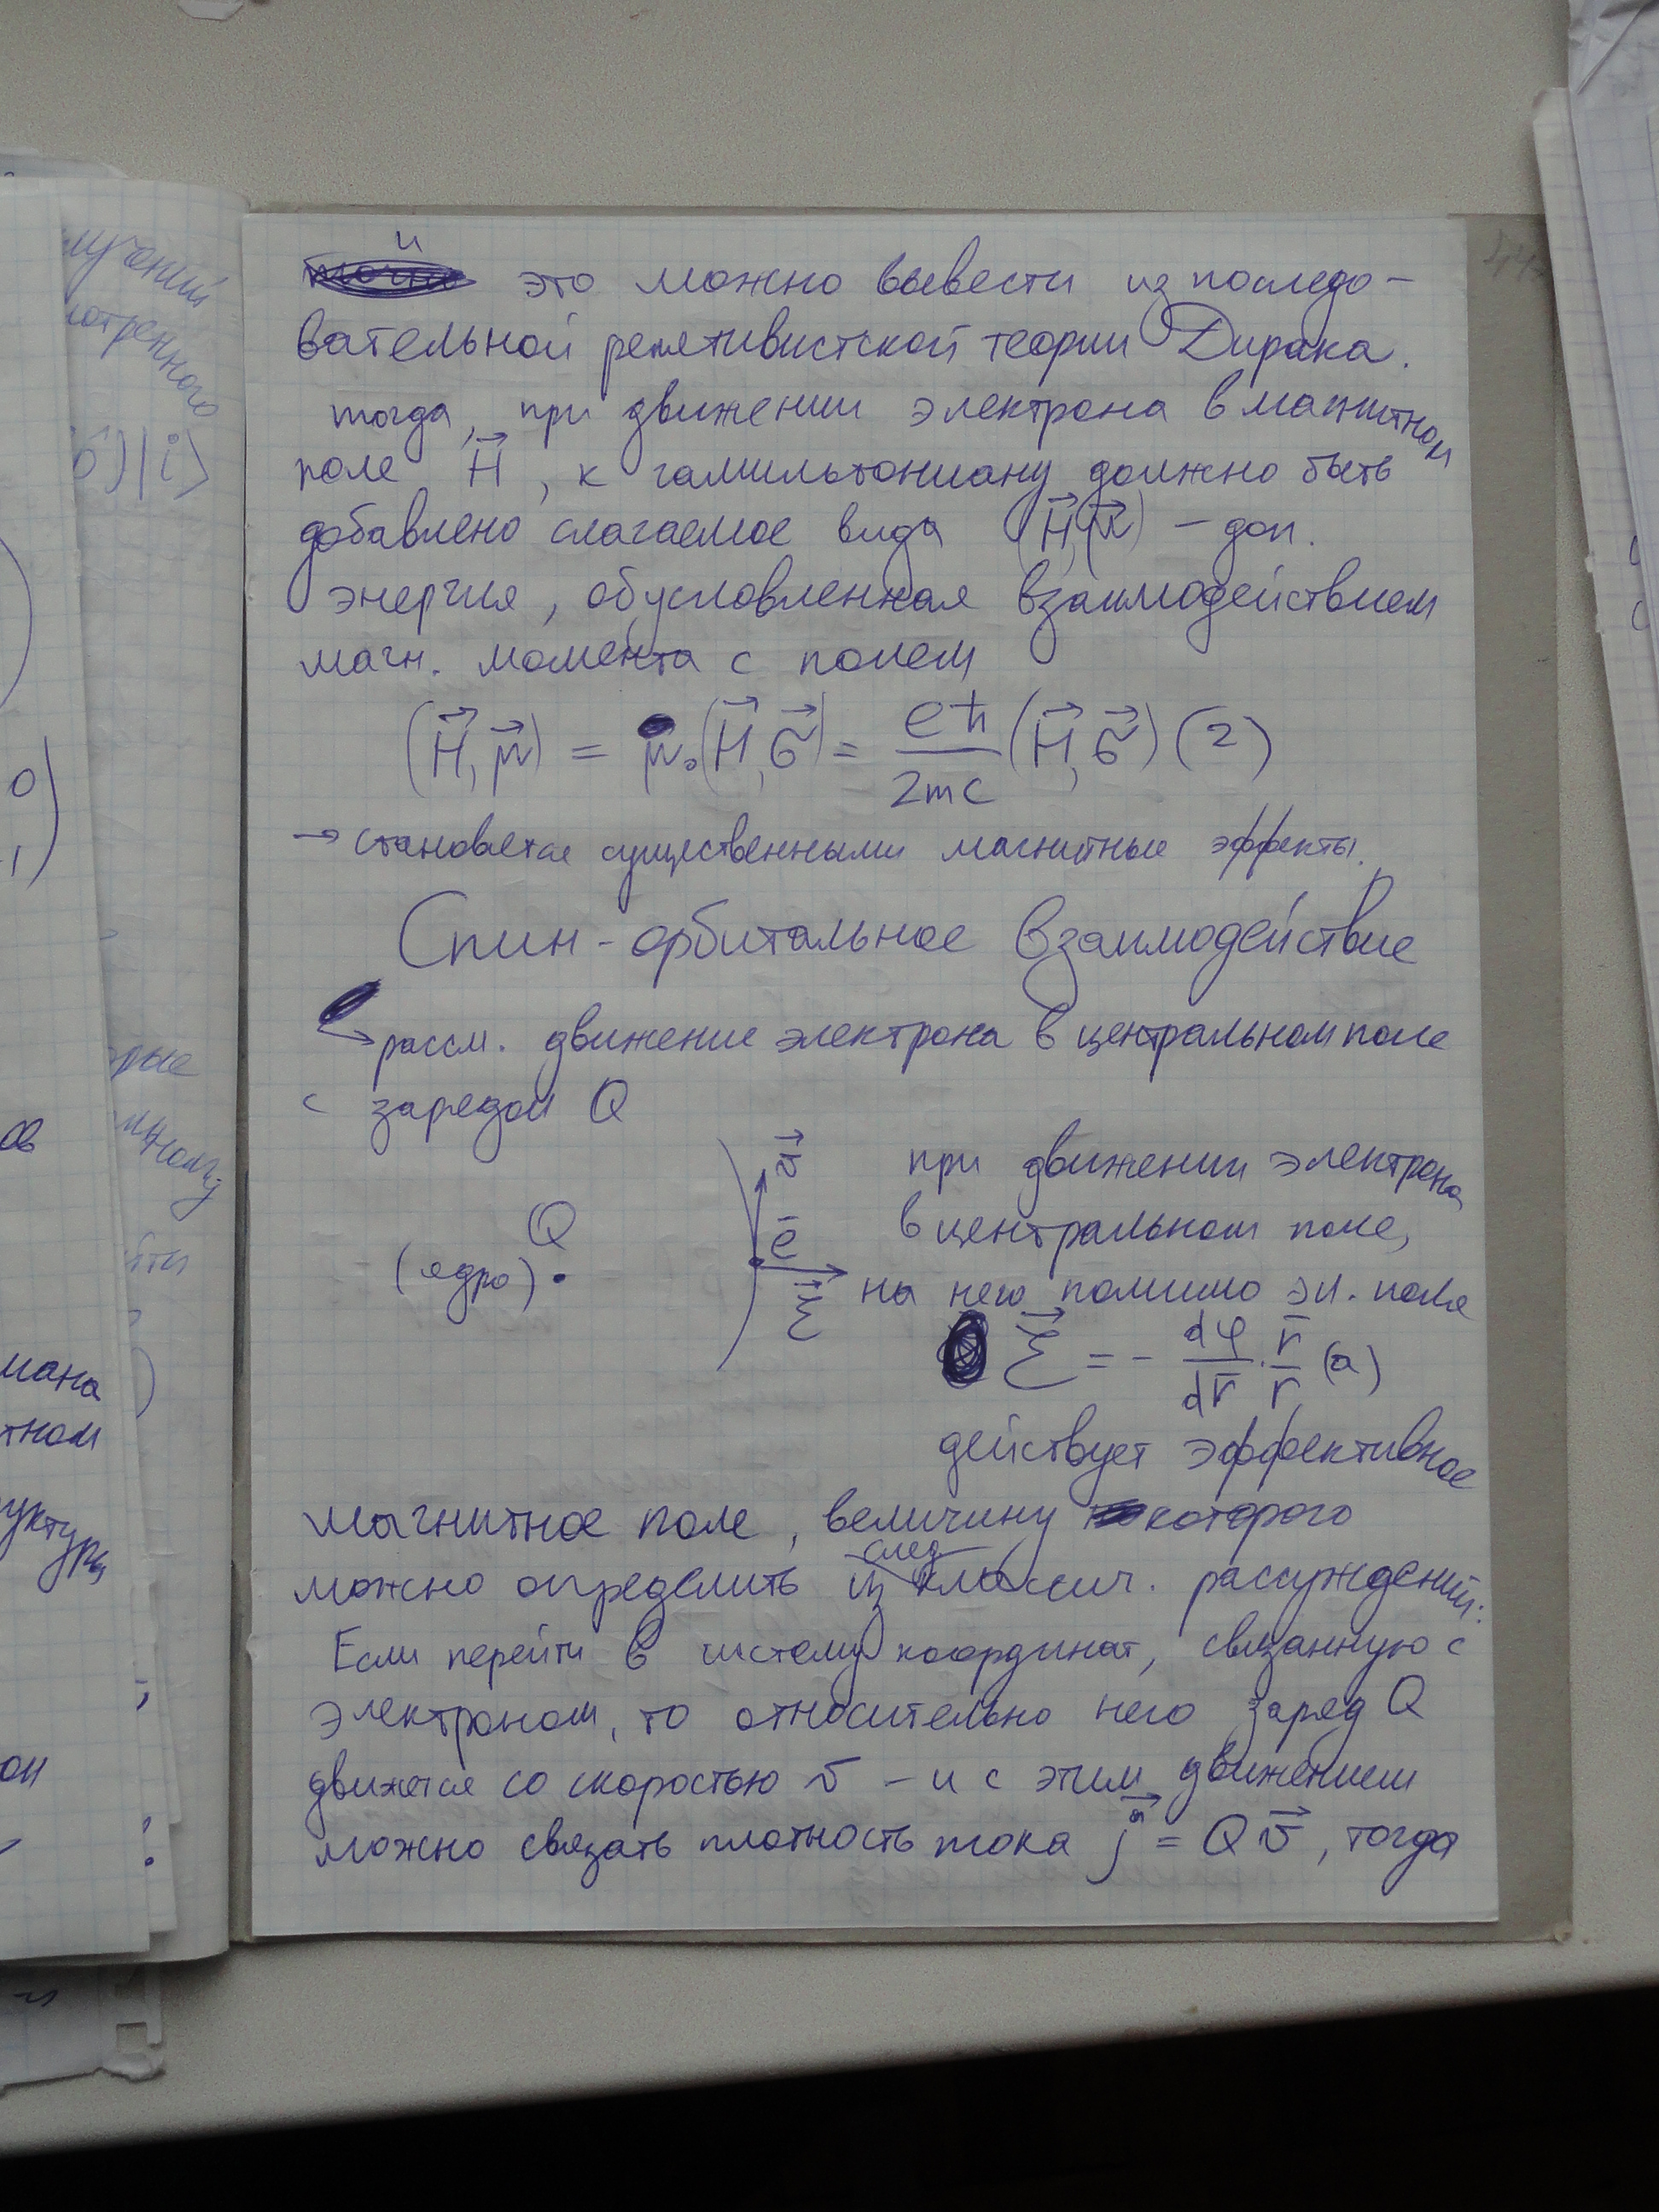 и это можно вывести из последо-
вательной релятивистской теории Дирака.
тогда, при движении электрона в магнитном
поле H⃗, к гамильтониану должно быть
добавлено слагаемое вида (H⃗,μ⃗) – доп.
энергия, обусловленная взаимодействием
магн. момента с полем
(H⃗,μ⃗) = μ₀(H⃗,σ⃗) = eħ/2mc (H⃗,σ⃗) (2)
→ становятся существенными магнитные эффекты.
Спин-орбитальное взаимодействие
→ рассм. движение электрона в центральном поле
с зарядом Q
v⃗
при движении электрона
Q
e
в центральном поле,
(ядро)
ℰ⃗
на него помимо эл. поля
ℰ⃗ = - dφ/dr · r̄/r (a)
действует эффективное
магнитное поле, величину которого
можно определить из след классич. рассуждений:
Если перейти в систему координат, связанную с
электроном, то относительно него заряд Q
движется со скоростью v̄ – и с этим движением
можно связать плотность тока j⃗ = Qv⃗, тогда
лучений
отренного
σ)|i>
0
1)
рые
ов
мана
тном
уктура
он